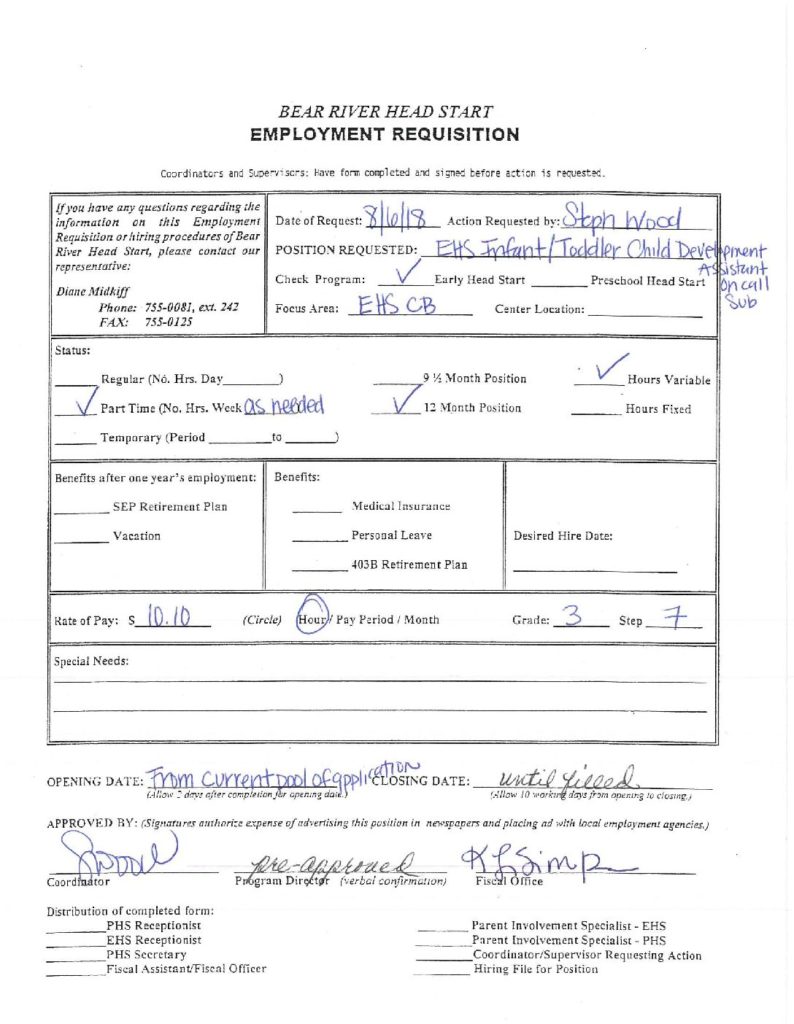 BEAR RIVER HEAD START
EMPLOYMENT REQUISITION
Coordinators and Supervisors: Have form completed and signed before action is requested.
If you have any questions regarding the
information on this Employment
Requisition or hiring procedures of Bear
River Head Start, please contact our
representative:
Diane Midkiff
Phone: 755-0081, ext. 242
FAX: 755-0125
Date of Request: 8/6/18 Action Requested by: Steph Wood
POSITION REQUESTED: EHS Infant/Toddler Child Development
Assistant
on call
Sub
Check Program: ✓ Early Head Start ______ Preschool Head Start
Focus Area: EHS CB Center Location: ______
Status:
______ Regular (No. Hrs. Day______) ______ 9 ½ Month Position ✓ Hours Variable
✓ Part Time (No. Hrs. Week as needed ✓ 12 Month Position ______ Hours Fixed
______ Temporary (Period ______ to ______)
Benefits after one year's employment:
______ SEP Retirement Plan
______ Vacation
Benefits:
______ Medical Insurance
______ Personal Leave
______ 403B Retirement Plan
Desired Hire Date:
Rate of Pay: $ 10.10 (Circle) Hour / Pay Period / Month Grade: 3 Step 7
Special Needs:
OPENING DATE: From current pool of application CLOSING DATE: until filled
(Allow 2 days after completion for opening date.) (Allow 10 working days from opening to closing.)
APPROVED BY: (Signatures authorize expense of advertising this position in newspapers and placing ad with local employment agencies.)
SWood pre-approved
Coordinator Program Director (verbal confirmation) Fiscal Office
Distribution of completed form:
______ PHS Receptionist
______ EHS Receptionist
______ PHS Secretary
______ Fiscal Assistant/Fiscal Officer
______ Parent Involvement Specialist - EHS
______ Parent Involvement Specialist - PHS
______ Coordinator/Supervisor Requesting Action
______ Hiring File for Position